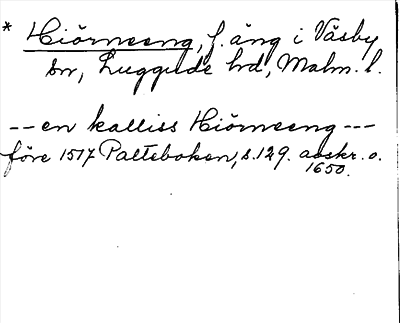 * Hiörneeng, f. äng i Väsby
sn, Luggude hd, Malm. l.
-- en kalliss Hiörneeng ---
före 1517 Palteboken, s. 129. avskr. o.
1650.